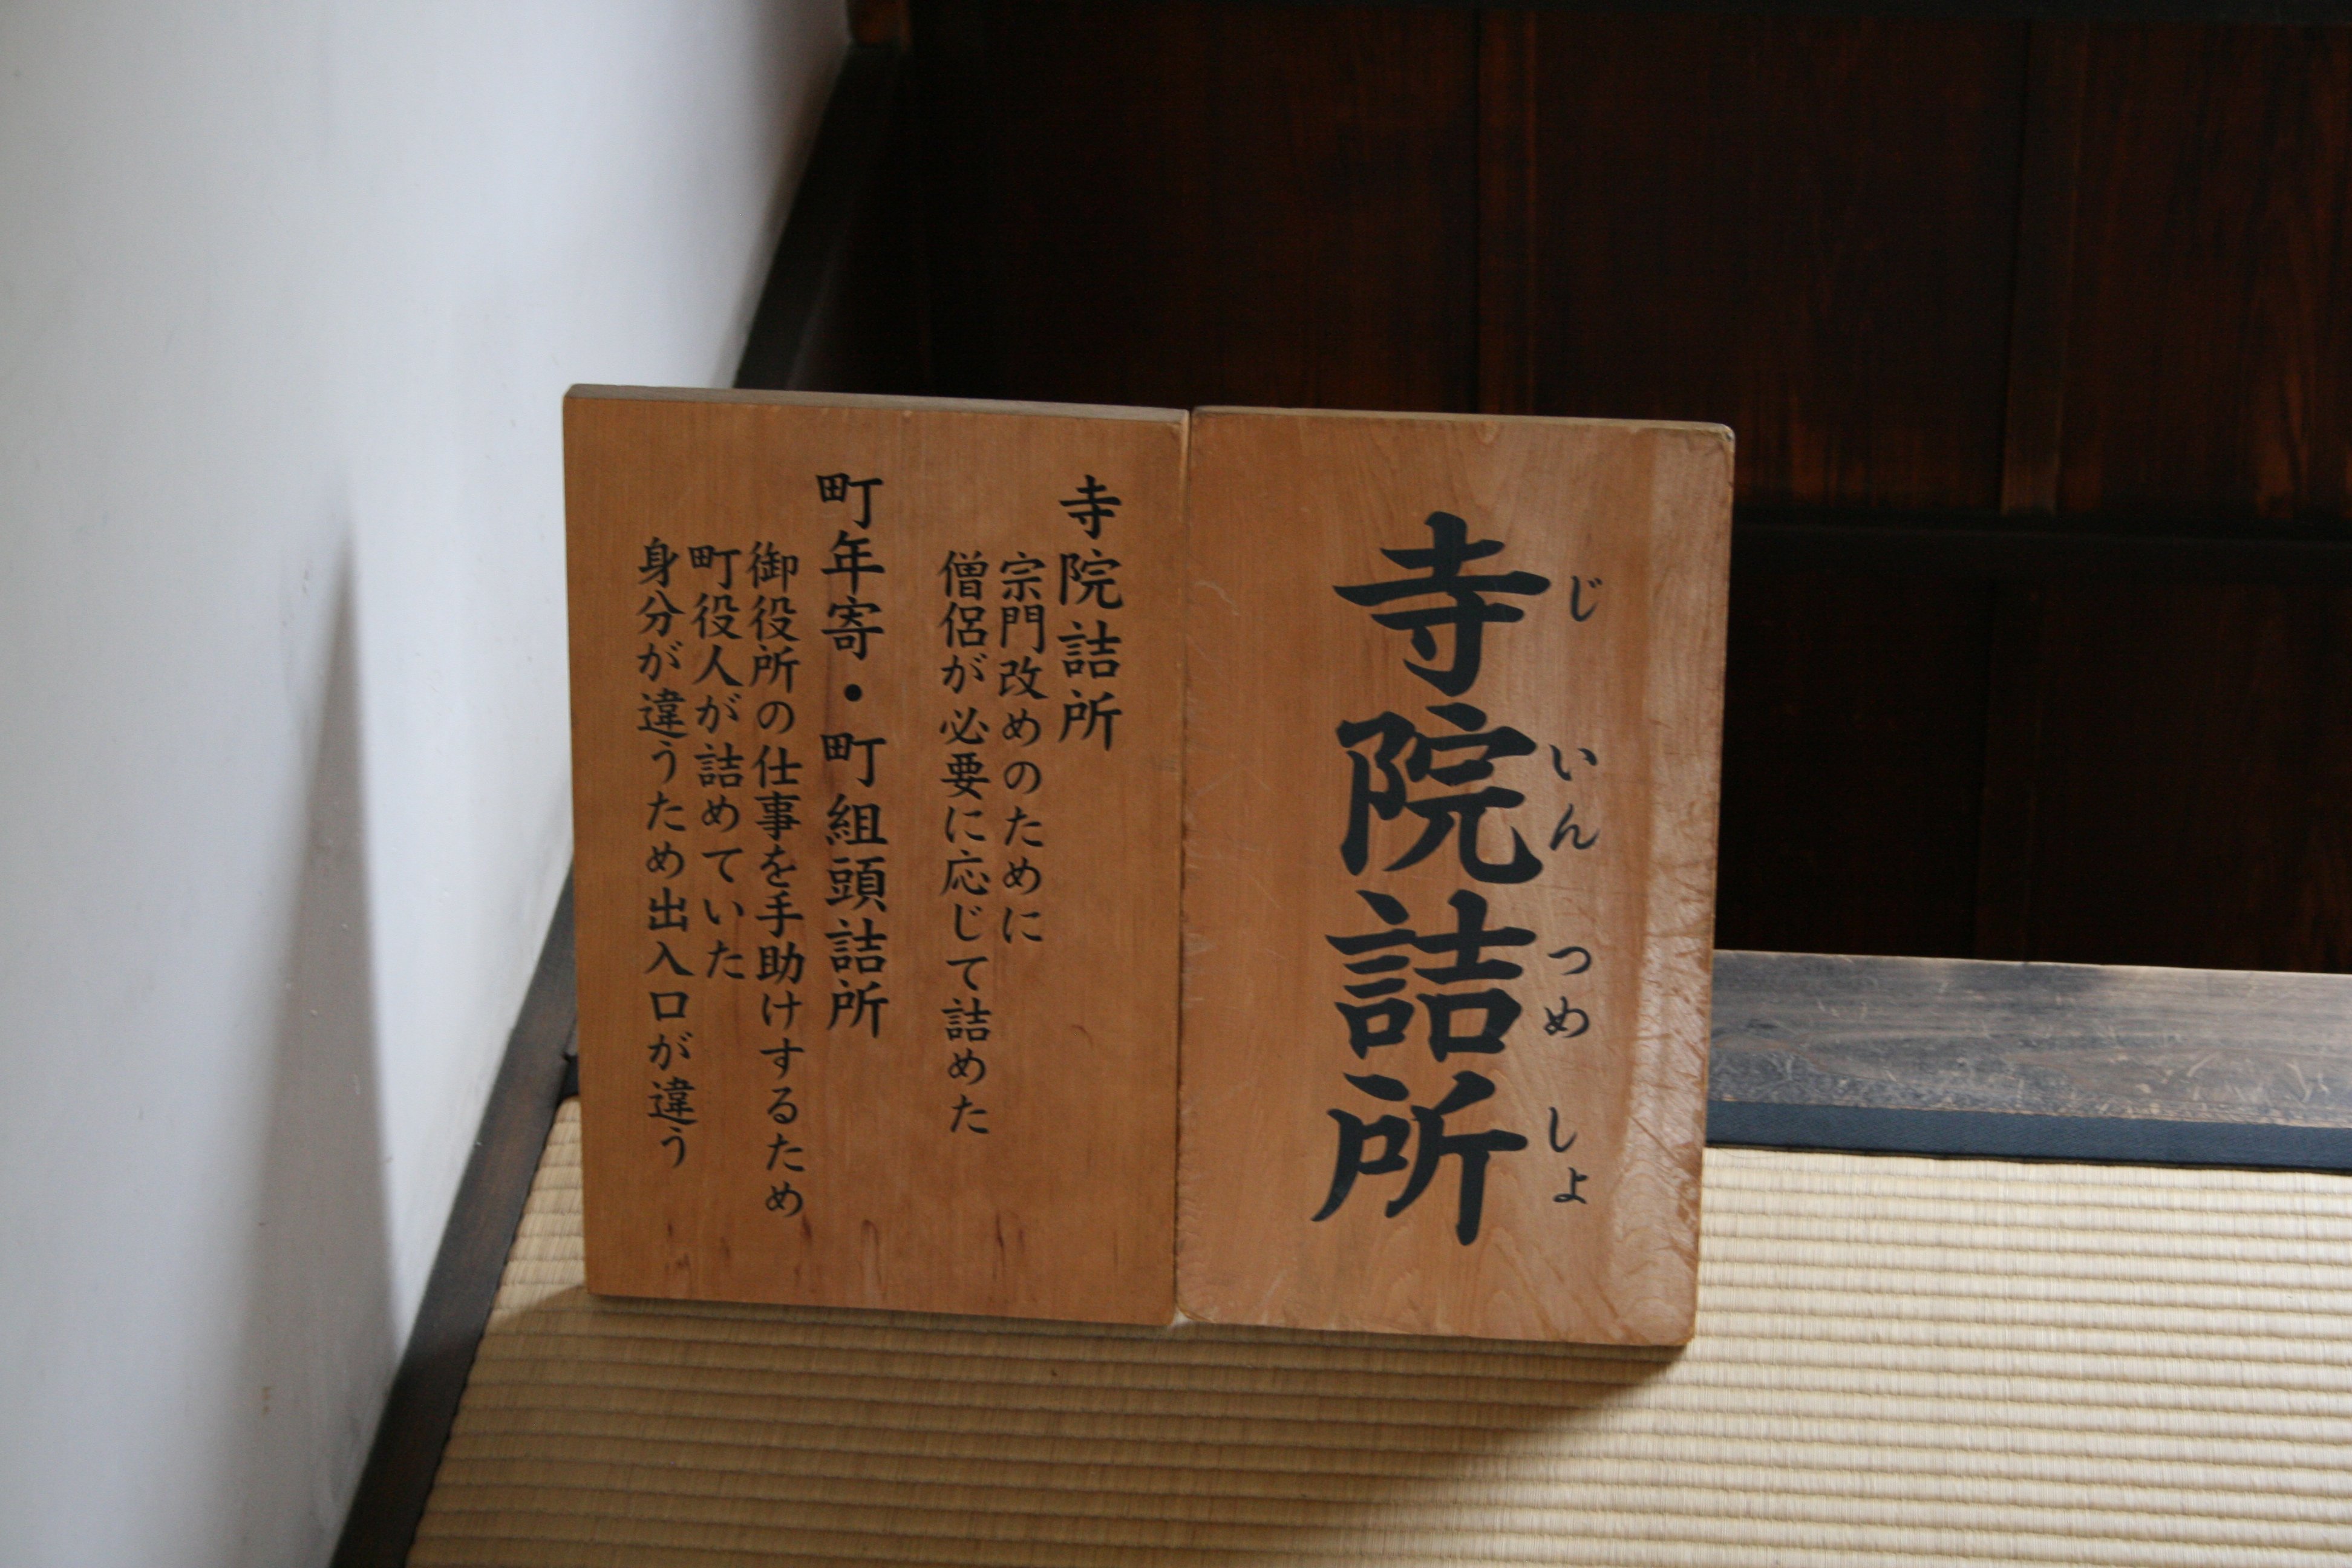 寺院詰所
じいんつめしょ
寺院詰所
宗門改めのために
僧侶が必要に応じて詰めた
町年寄・町組頭詰所
御役所の仕事を手助けするため
町役人が詰めていた
身分が違うため出入口が違う